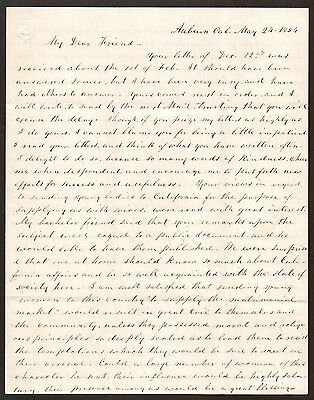 Auburn Cal. May 24. 1854
My Dear Friend.
Your letter of Dec. 22nd was
received about the 1st of Feb. It should have been
answered sooner, but I have been very busy, and have
had others to answer. Yours comes next in order and I
will write to send by the next Mail trusting that you will
excuse the delay though if you prize my letters as highly as
I do yours, I cannot blame you for being a little impatient
I read your letters, and think of what you have written often.
I delight to do so, because so many words of kindness, cheer
me when despondent and encourage me to put forth new
efforts for success and usefulness. Your views in regard
to sending young ladies to California for the purpose of
supplying us with wives, were read with great interest.
My bachelor friend said that your remarks upon the
subject were equal to a public document and he
would like to have them published. We were surprised
that one at home should know so much about Cal-
fornia affairs and be so well acquainted with the state of
society here. I am well satisfied that sending young
women to this country to supply the matrimonial
market would result in great evil to themselves and
the community, unless they possessed moral and relig-
ious principles so deeply seated as to lead them to resist
the temptations which they would be sure to meet on
their arrival. Could a large number of women of this
character be sent their influence would be highly salu-
tary, their presence among us would be a great blessing